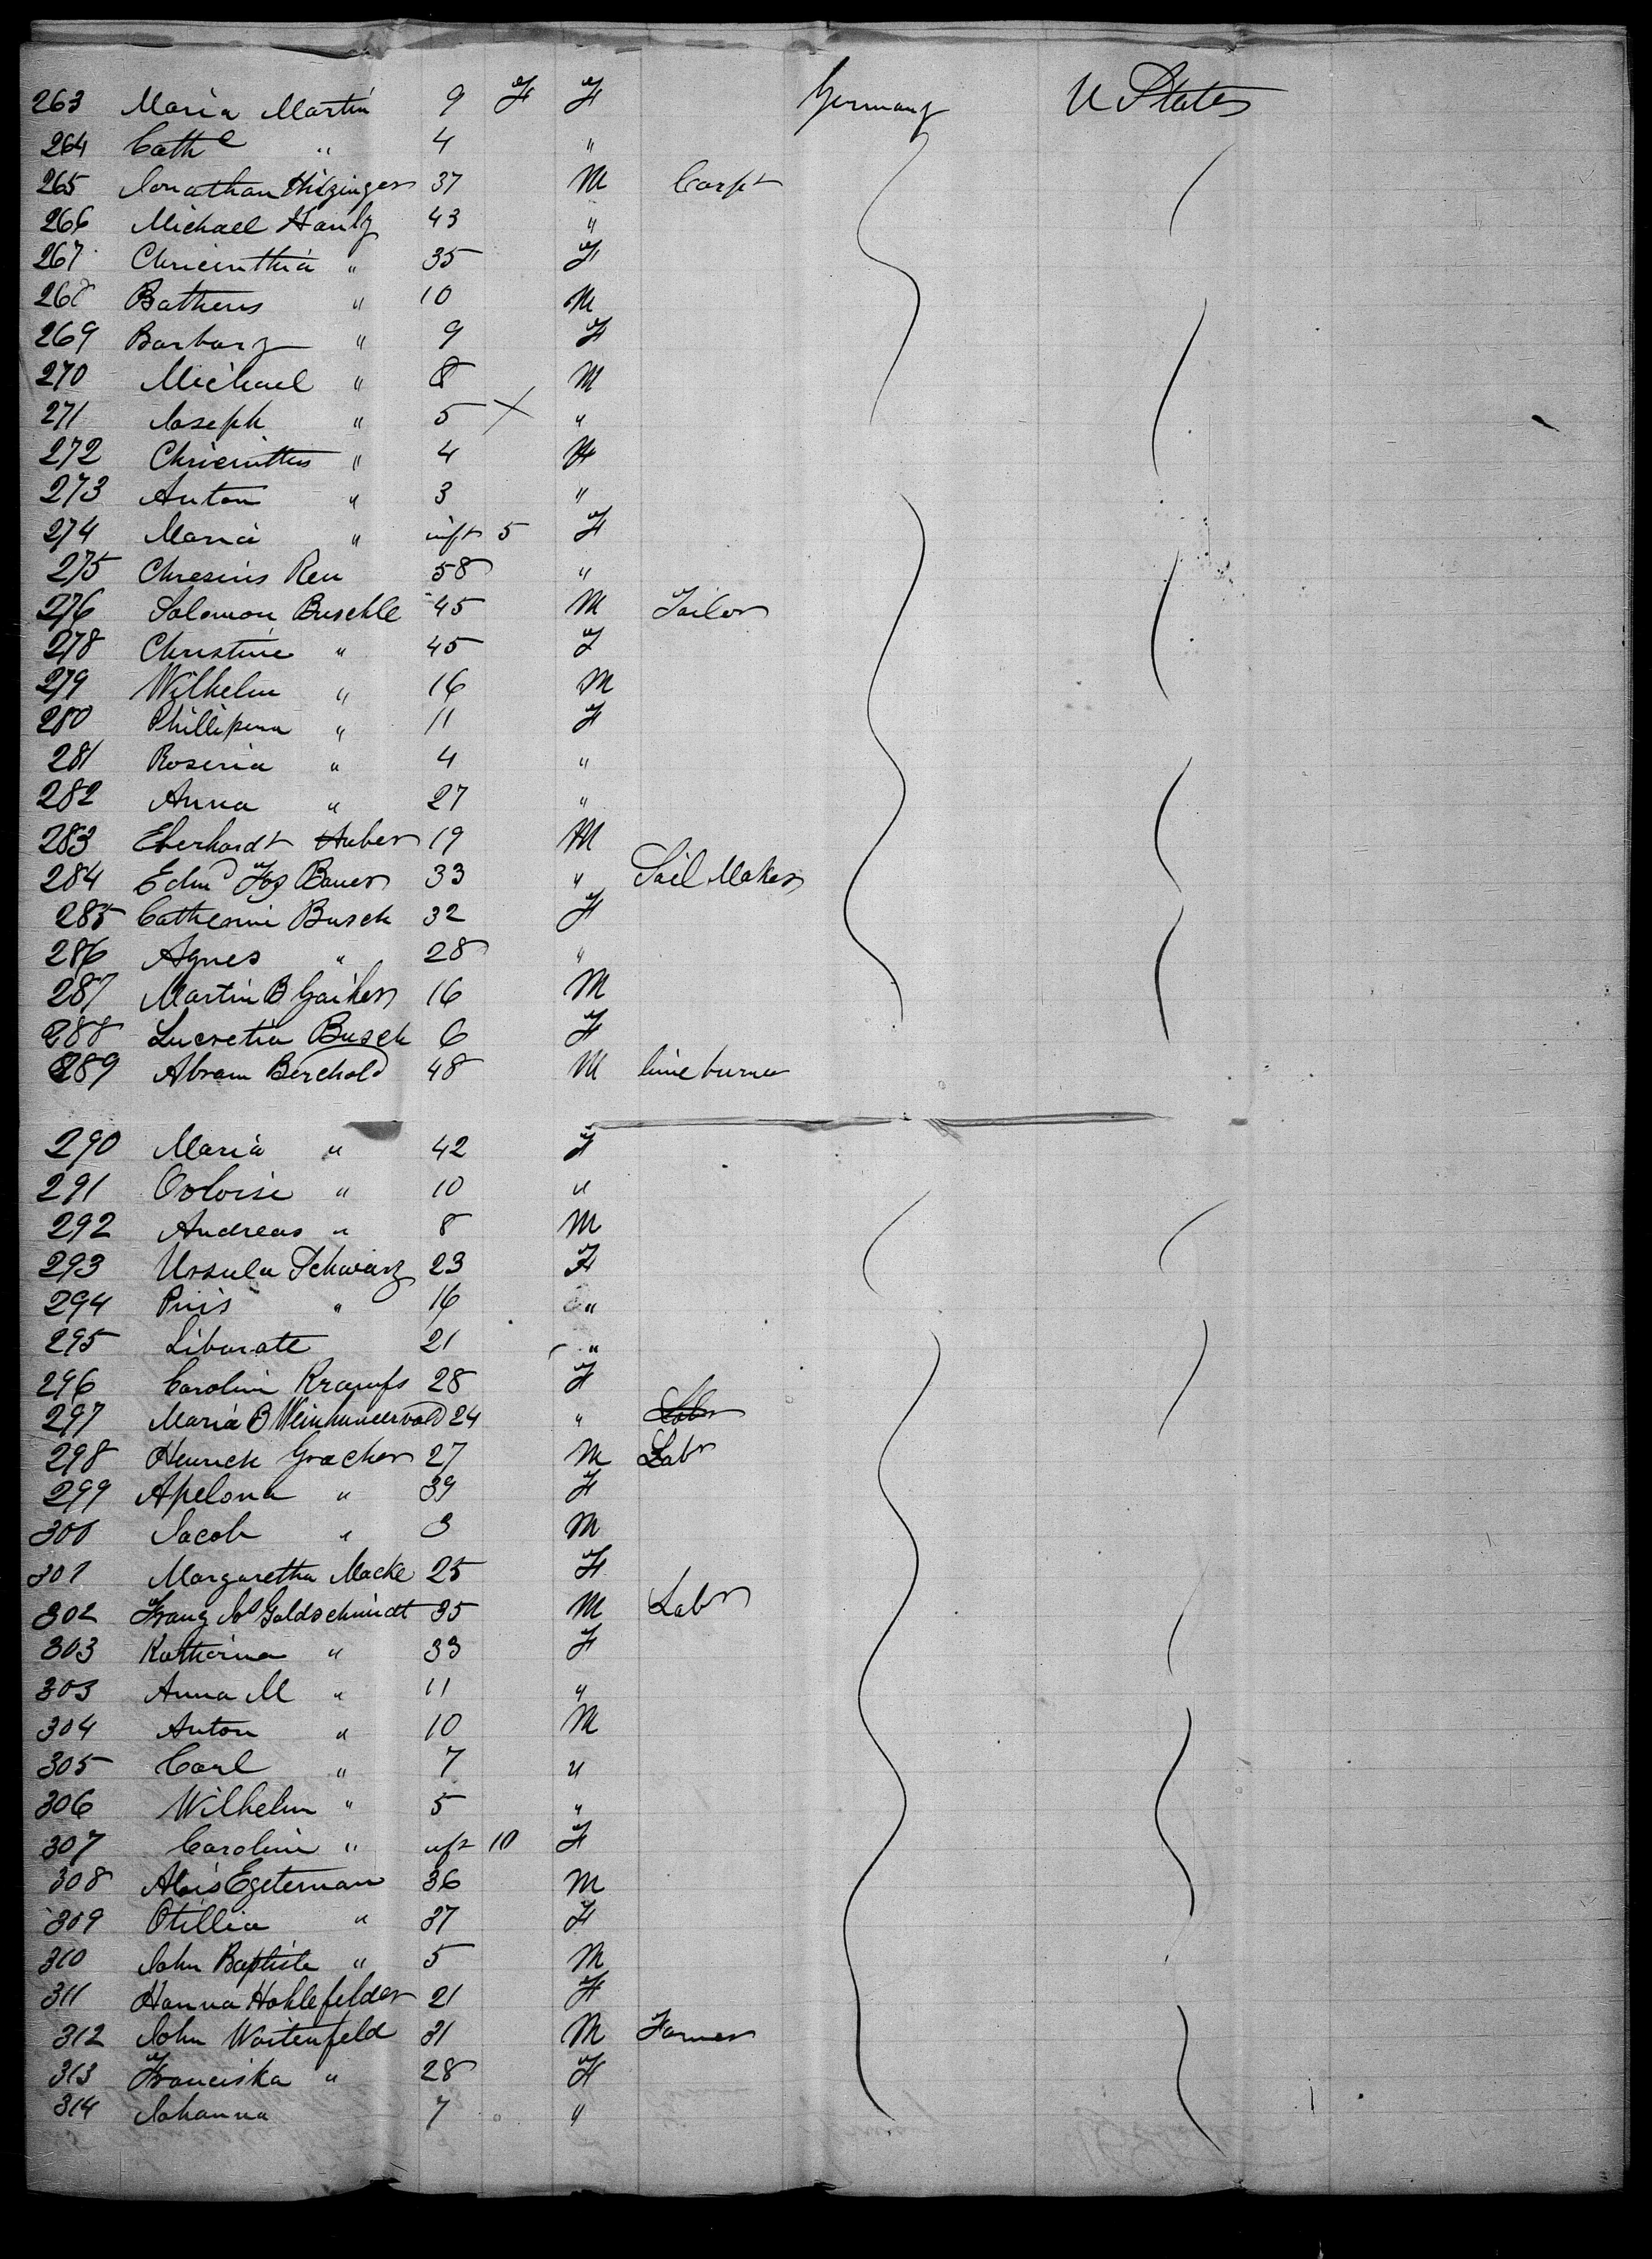 263 Maria Martin 9 F F Germany U States
264 Cath^e " 4 "
265 Jonathan Hitzinger 37 M Carpt
266 Michael Hantz 43 "
267 Chricinthia " 35 F
268 Batheus " 10 M
269 Barbary " 9 F
270 Michael " 8 M
271 Joseph " 5 X "
272 Chricinthus " 4 M
273 Anton " 3 "
274 Maria " inft 5 F
275 Chresins Reu 58 "
276 Solomon Buschle 45 M Tailor
278 Christine " 45 F
279 Wilhelm " 16 M
280 Phillipena " 11 F
281 Rosina " 4 "
282 Anna " 27 "
283 Eberhardt Huber 19 M
284 Edmd Jos Bauer 33 " Sail Maker
285 Catherine Busch 32 F
286 Agnes " 28 "
287 Martin B Gaiker 16 M
288 Lucretia Busch 6 F
289 Abram Berchold 48 M lime burner
290 Maria " 42 F
291 Ooloise " 10 "
292 Andreas " 8 M
293 Ursula Schwarz 23 F
294 Puis " 16 "
295 Liburate 21 "
296 Carolin Kramps 28 F
297 Maria B 24 " Labr
298 Henrich Gracher 27 M Labr
299 Apelona " 39 F
300 Jacob " 3 M
301 Margaretha Macke 25 F
302 Franz Js Goldschmidt 35 M Labr
303 Katharina " 33 F
303 Anna M " 11 "
304 Anton " 10 M
305 Carl " 7 "
306 Wilhelm " 5 "
307 Carolin " inft 10 F
308 Alois Egeterman 36 M
309 Otillia " 37 F
310 John Baptiste " 5 M
311 Hanna Hohlefelder 21 F
312 John Waitenfeld 31 M Farmer
313 Franciska " 28 F
314 Johanna 7 "